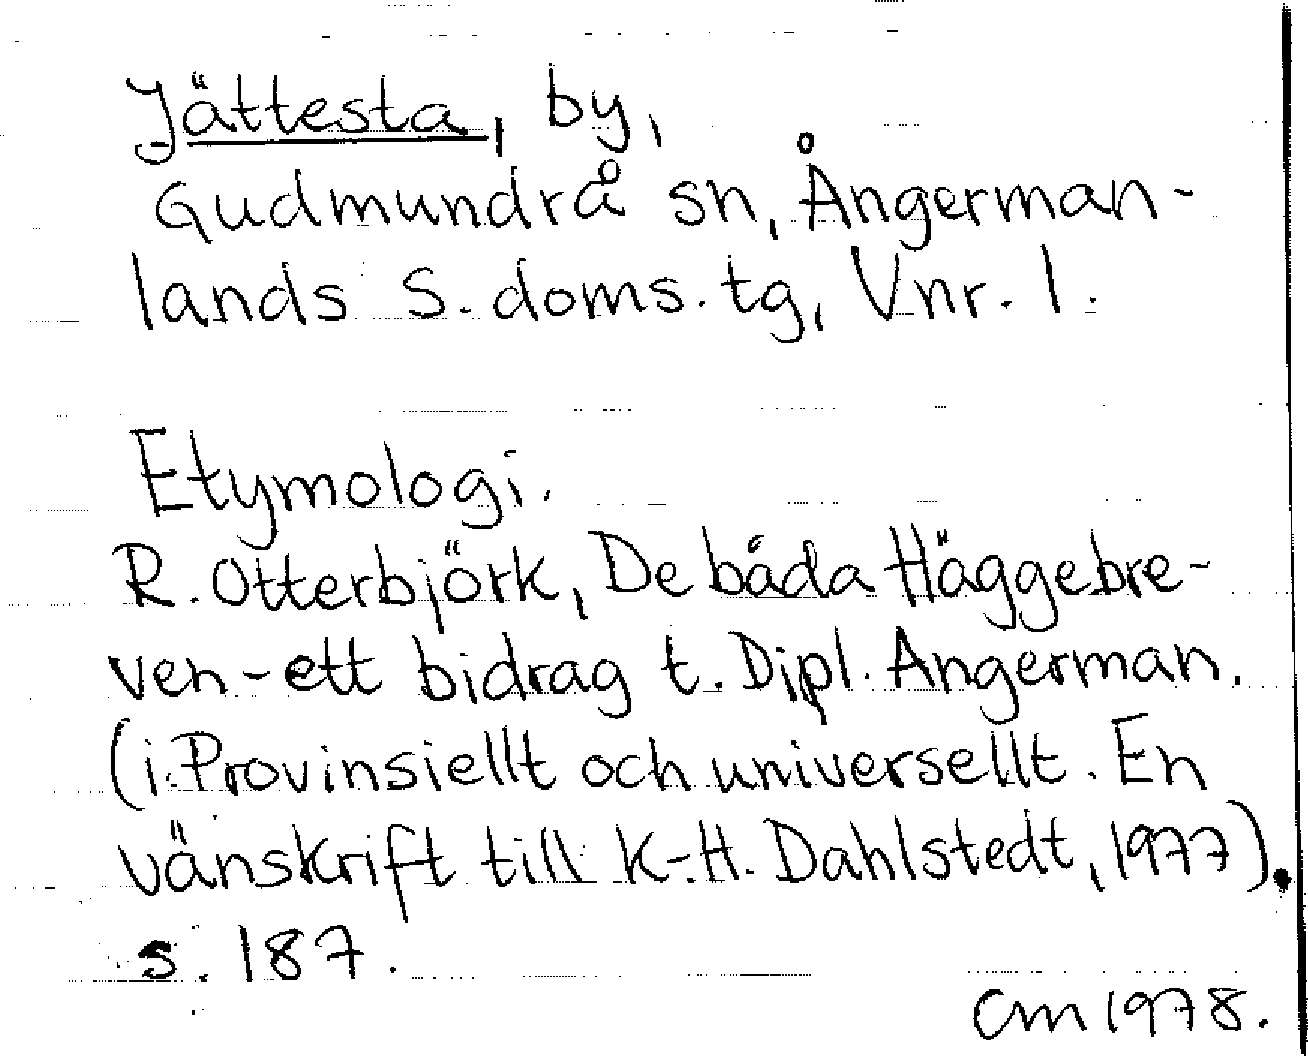 Jättesta, by,
Gudmundrå sn, Ångerman-
lands S. doms. tg, Vnr. 1.
Etymologi.
R. Otterbjörk, De båda Häggebre-
ven - ett bidrag t. Dipl. Angerman.
(i: Provinsiellt och universellt. En
vänskrift till K-H. Dahlstedt, 1977).
s. 187.
Cm 1978.